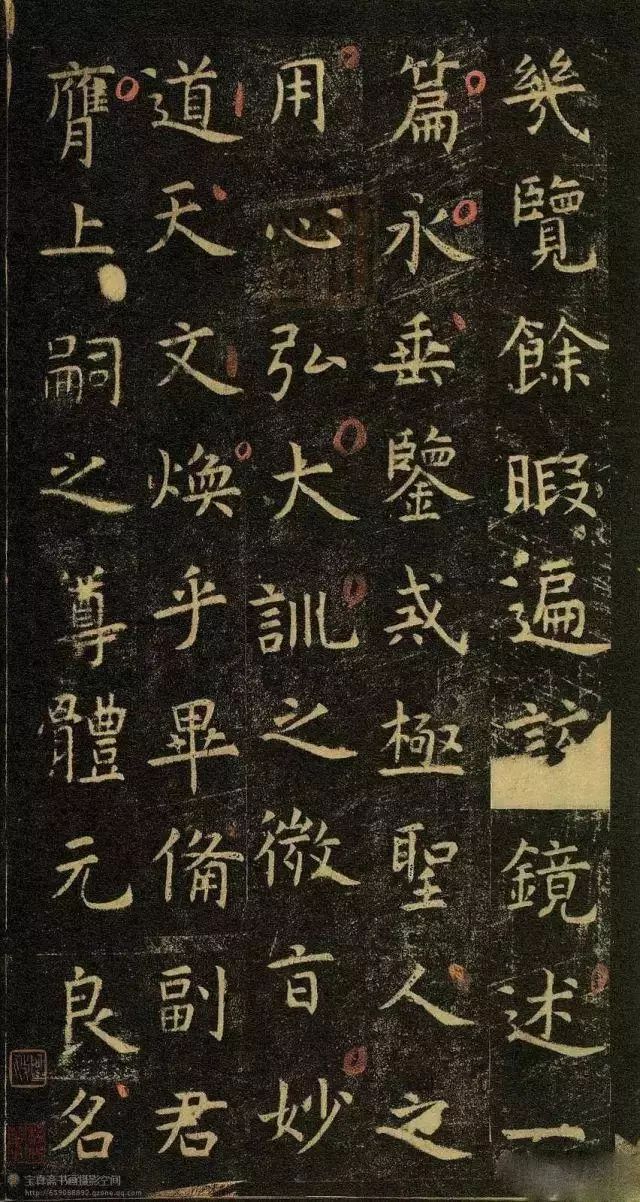 幾覽餘暇遍鏡述一
篇永垂鑒戒極聖人之
用心弘大訓之微旨妙
道天文煥乎畢備副君
膺上嗣之尊體元良名
宝真斋书画摄影空间
http://659088892.qzone.qq.com